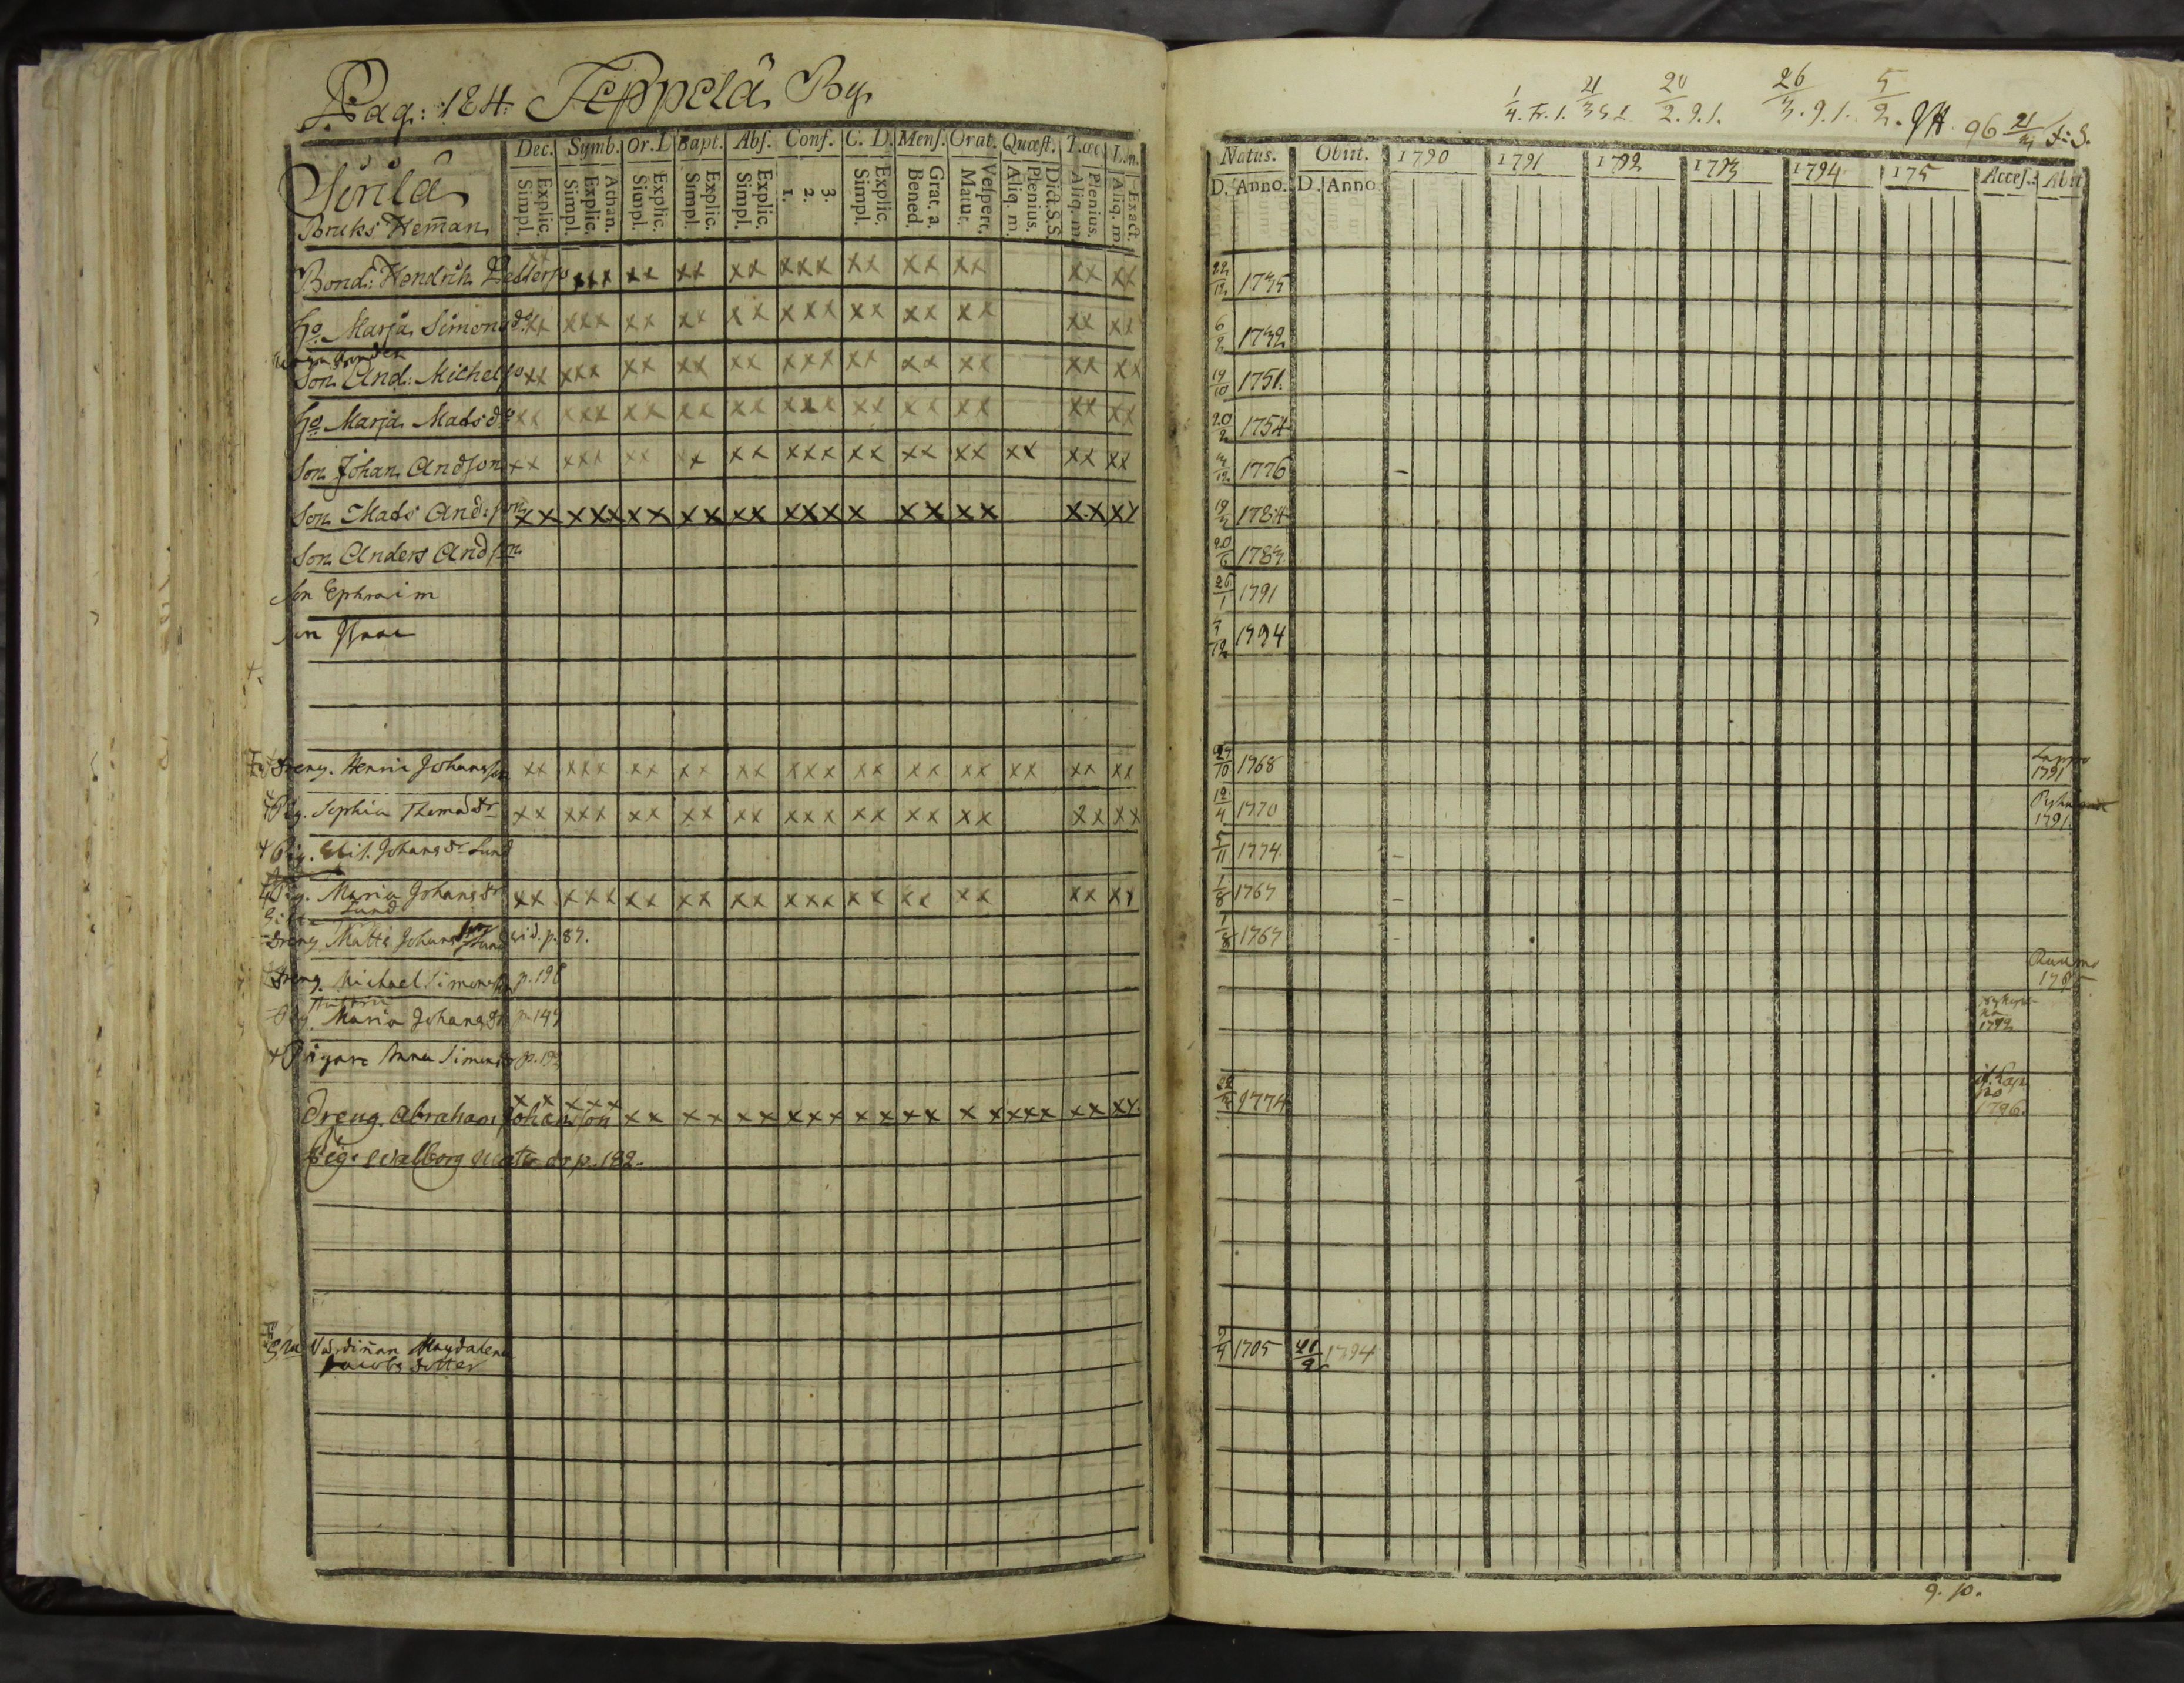 Pag: 184. Teppelä By
Dec. Symb. Or. D. Bapt. Abs. Conf. C. D. Mens. Orat. Quæst. T.œc. L.n.
Explic. Simpl. Athan. Explic. Simpl. Explic. Simpl. Explic. Simpl. Explic. Simpl. 3. 2. 1. Explic. Simpl. Grat. a. Bened. Vespert. Matut. Dict. S.S. Plenius. Aliq. m. Plenius. Aliq. m. Exact. Aliq. m.
Sirilä
Bruks Heman
Bond: Hendrich Petterss xxx xx xx xx xxx xx xx xx xx xx
ho Marja Simonsdr xx xxx xx xx xx xxx xx xx xx xx xx
Son And: Michelss xx xxx xx xx xx xxx xx xx xx xx xx
ho Marja Matsdr xx xxx xx xx xx xxx xx xx xx xx xx
Son Johan Andson xx xxx xx xx xx xxx xx xx xx xx xx xx
Son Mats And:son xx xxx xx xx xx xxx x xx xx xx xx
Son Anders Andson
Son Ephraim
Son Isaac
Dreng. Henric Johansson xx xxx xx xx xx xxx xx xx xx xx xx xx
Pig. Sophia Thomasdr xx xxx xx xx xx xxx xx xx xx xx xx
Pig. Elis. Johansdr Lund
Pig. Maria Johansdr xx xxx xx xx xx xxx xx xx xx xx xx
Lund
Dreng Matts Johansson Lund vid. p. 87.
Dreng. Michael Simonsson p. 198
Pig. Maria Johansdr p. 149
Pigan Anna Simonsdr p. 192
xx xxx
Dreng Abraham Johansson xx xx xx xxx xx xx xx xxxx xx xx
Pig. Walborg Matsdr p. 182.
Magdalena
Jacobs dotter
1/4. Fr. 1. 21/3 S.1. 20/2. 9.1. 26/3. 9.1. 5/2. 96 21/3 F:S.
Natus. Obiit. 1790 1791 1792 1793 1794 175 Acces. Abit
D. Anno. D. Anno
22/12 1735
6/2 1732
19/10 1751.
20/2 1754
3/12 1776
19/3 1784
20/6 1783
26/1 1791
1794
27/10 1768 Lappo 1791
12/4 1770 1791.
5/11 1774
1/8 1767
1/8 1767
1792
1774 1796.
2/4 1705 21/9 1794
9. 10.